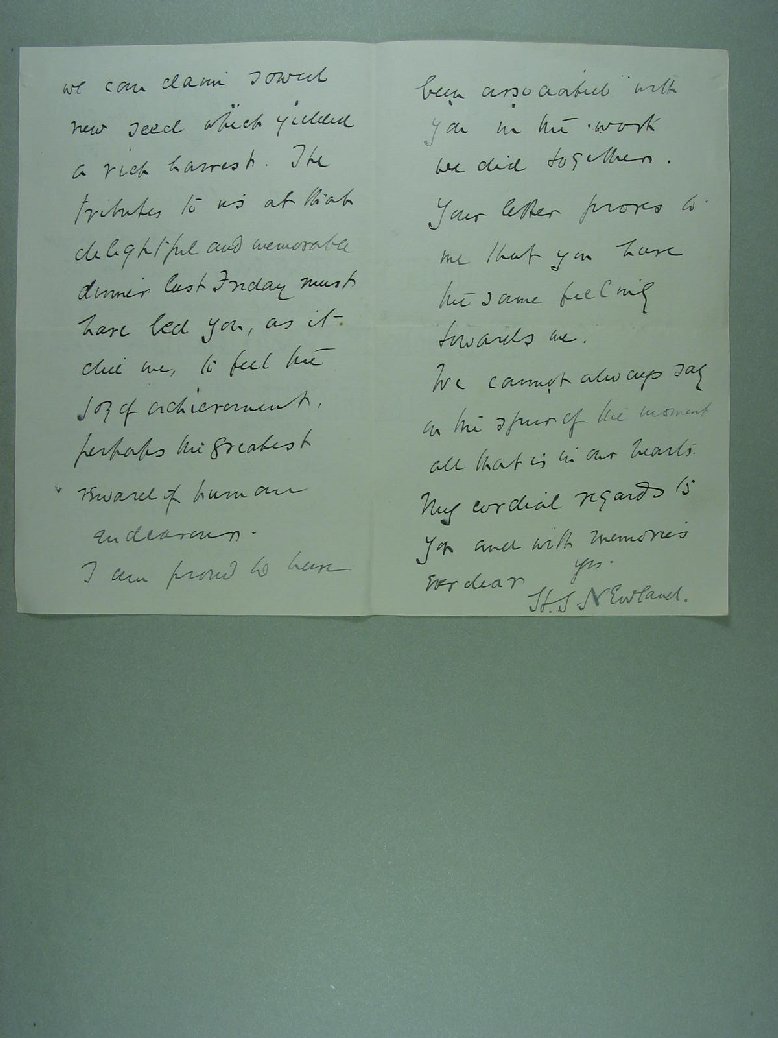 we can claim sowed
new seed which yielded
a rich harvest. The
tributes to us at that
delightful and memorable
dinner last Friday must
have led you, as it
did me, to feel the
joy of achievement,
perhaps the greatest
reward of human
endeavour.
I am proud to have
been associated with
you in the work
we did together.
Your letter proves to
me that you have
the same feeling
towards me.
We cannot always say
in the spur of the moment
all that is in our hearts.
My cordial regards to
you and with memories
ever dear yrs.
H. S. Newland.